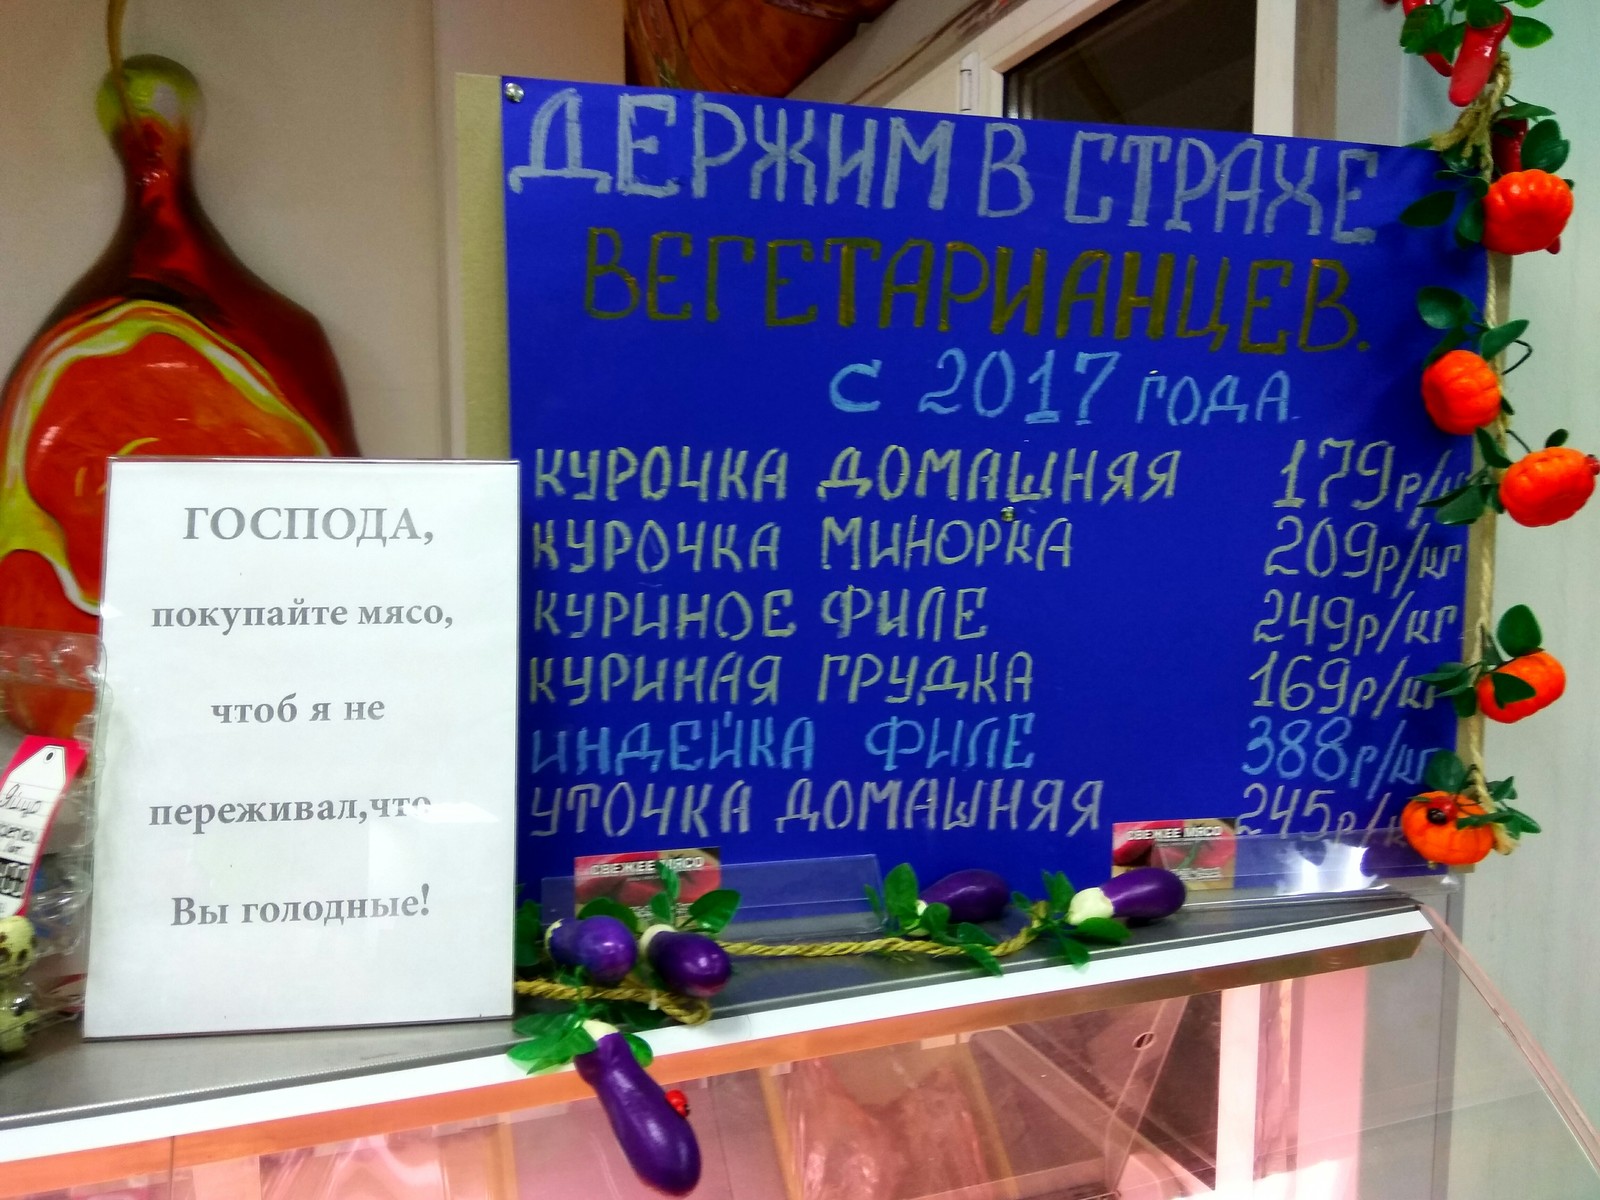 ДЕРЖИМ В СТРАХЕ
ВЕГЕТАРИАНЦЕВ.
с 2017 года
КУРОЧКА ДОМАШНЯЯ 179р/
КУРОЧКА МИНОРКА 209р/кг
КУРИНОЕ ФИЛЕ 249р/кг
КУРИНАЯ ГРУДКА 169р/кг
ИНДЕЙКА ФИЛЕ 388р/кг
УТОЧКА ДОМАШНЯЯ 245р/
ГОСПОДА,
покупайте мясо,
чтоб я не
переживал,что
Вы голодные!
СВЕЖЕЕ МЯСО
СВЕЖЕЕ МЯСО
Яйцо